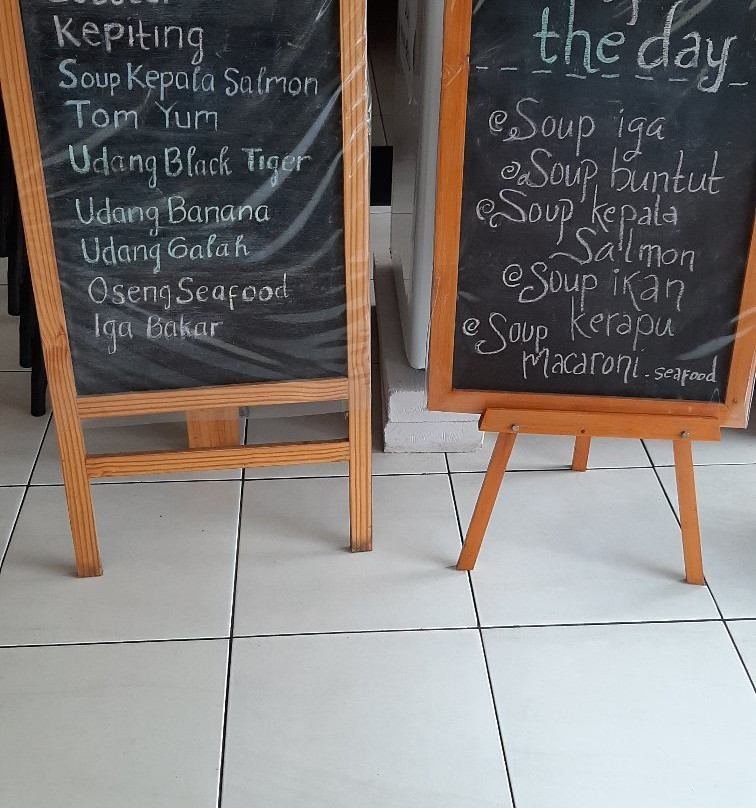 Kepiting
Soup Kepala Salmon
Tom Yum
Udang Black Tiger
Udang Banana
Udang Galah
Oseng Seafood
Iga Bakar
the day
Soup iga
Soup buntut
Soup kepala
Salmon
Soup ikan
kerapu
Soup
Macaroni. seafood